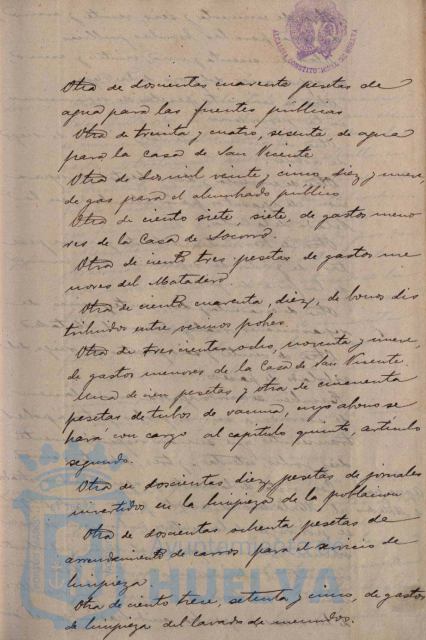 ALCALDIA CONSTITUCIONAL DE HUELVA
Otra de doscientas cuarenta pesetas de
agua para las fuentes públicas
Otra de treinta y cuatro, sesenta, de agua
para la Casa de San Vicente
Otra de dos mil veinte y cinco, diez y nueve,
de gas para el alumbrado público
Otra de ciento siete, siete, de gastos meno
res de la Casa de Socorro.
Otra de ciento tres pesetas de gastos me
nores del Matadero
Otra de ciento cuarenta, diez, de bonos dis
tribuidos entre vecinos pobres
Otra de trescientas ocho, noventa y nueve,
de gastos menores de la Casa de San Vicente.
Una de cien pesetas y otra de cincuenta
pesetas de tubos de vacuna, cuyo abono se
hará con cargo al capítulo quinto, artículo
segundo.
Otra de doscientas diez pesetas de jornales
invertidos en la limpieza de la población
Otra de doscientas ochenta pesetas de
arrendamiento de carros para el servicio de
limpieza.
Otra de ciento trece, setenta y cinco, de gastos
de limpieza del lavado de menudos.
HUELVA